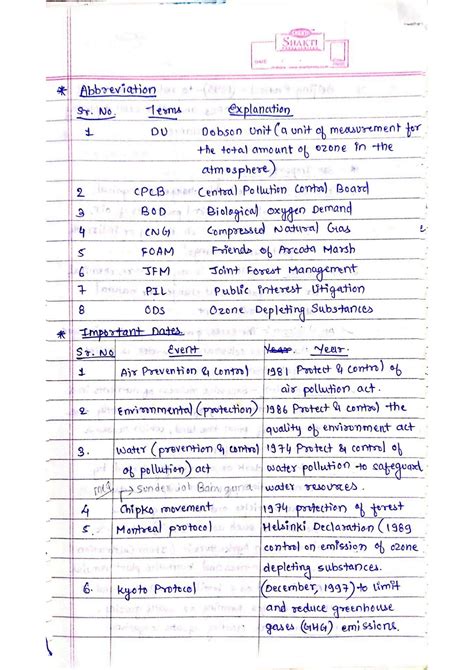 SHAKTI
DATE
* Abbreviation
Sr. No. Terms Explanation
1 DU Dobson Unit (a unit of measurement for
the total amount of ozone in the
atmosphere)
2 CPCB Central Pollution Control Board
3 BOD Biological Oxygen Demand
4 CNG Compressed Natural Gas
5 FOAM Friends of Arcata Marsh
6 JFM Joint Forest Management
7 PIL Public interest Litigation
8 ODS Ozone Depleting Substances
* Important Dates
Sr. No Event Year. Year.
1 Air Prevention & Control 1981 Protect & control of
air pollution act.
2 Environmental (protection) 1986 Protect & control the
quality of environment act
3. Water (prevention & control 1974 Protect & control of
of pollution) act water pollution to safeguard
MCQ → Sunder lal water resources.
4 Chipko movement 1974 protection of forest
5. Montreal protocol Helsinki Declaration (1989
control on emission of ozone
depleting substances.
6. Kyoto Protocol (December, 1997) to limit
and reduce greenhouse
gases (GHG) emissions.